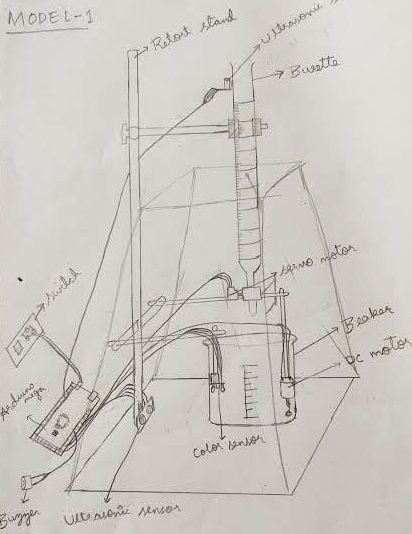 MODEL-1
Retort stand
Ultrasonic
Burette
servo motor
switch
Beaker
DC motor
Arduino
mega
Color sensor
Buzzer
Ultrasonic sensor